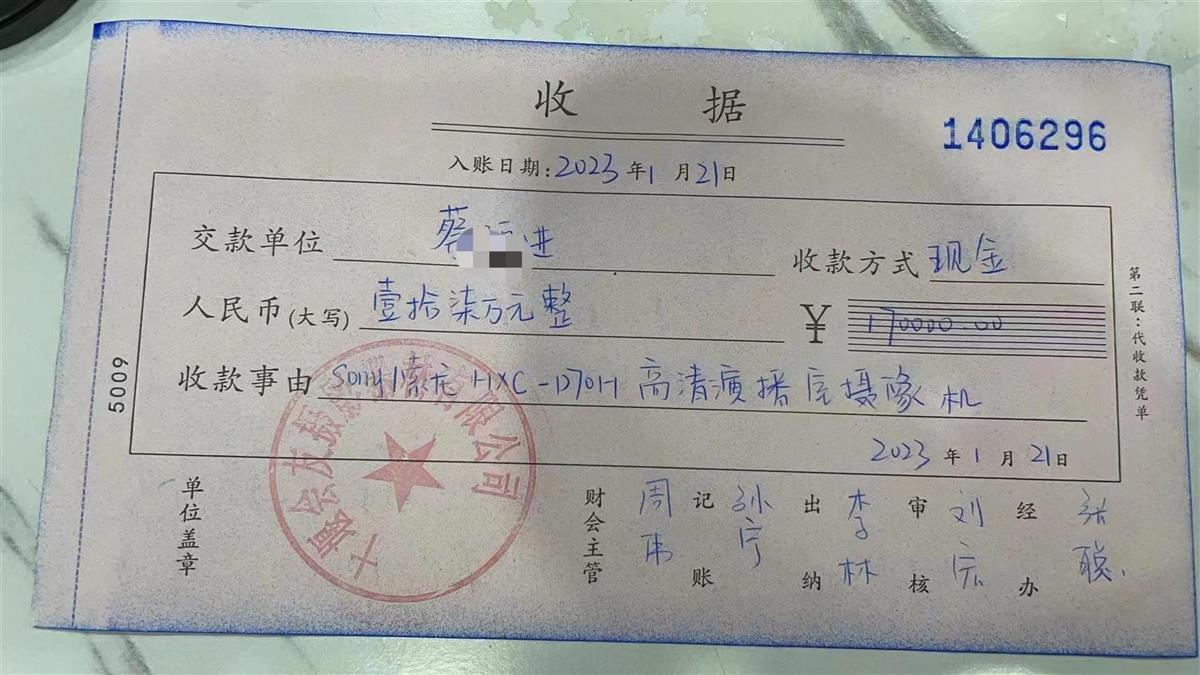 收据
1406296
入账日期:2023年1月21日
交款单位 蔡 进 收款方式 现金
人民币(大写) 壹拾柒万元整 ¥ 170000.00
收款事由 Sony索尼 HXC-D70H 高清演播室摄像机
2023年1月21日
单位盖章
财会主管 周伟 记账 孙宁 出纳 李林 审核 刘宏 经办 张聪
第二联:代收款凭单
5009
十堰会友 有限公司